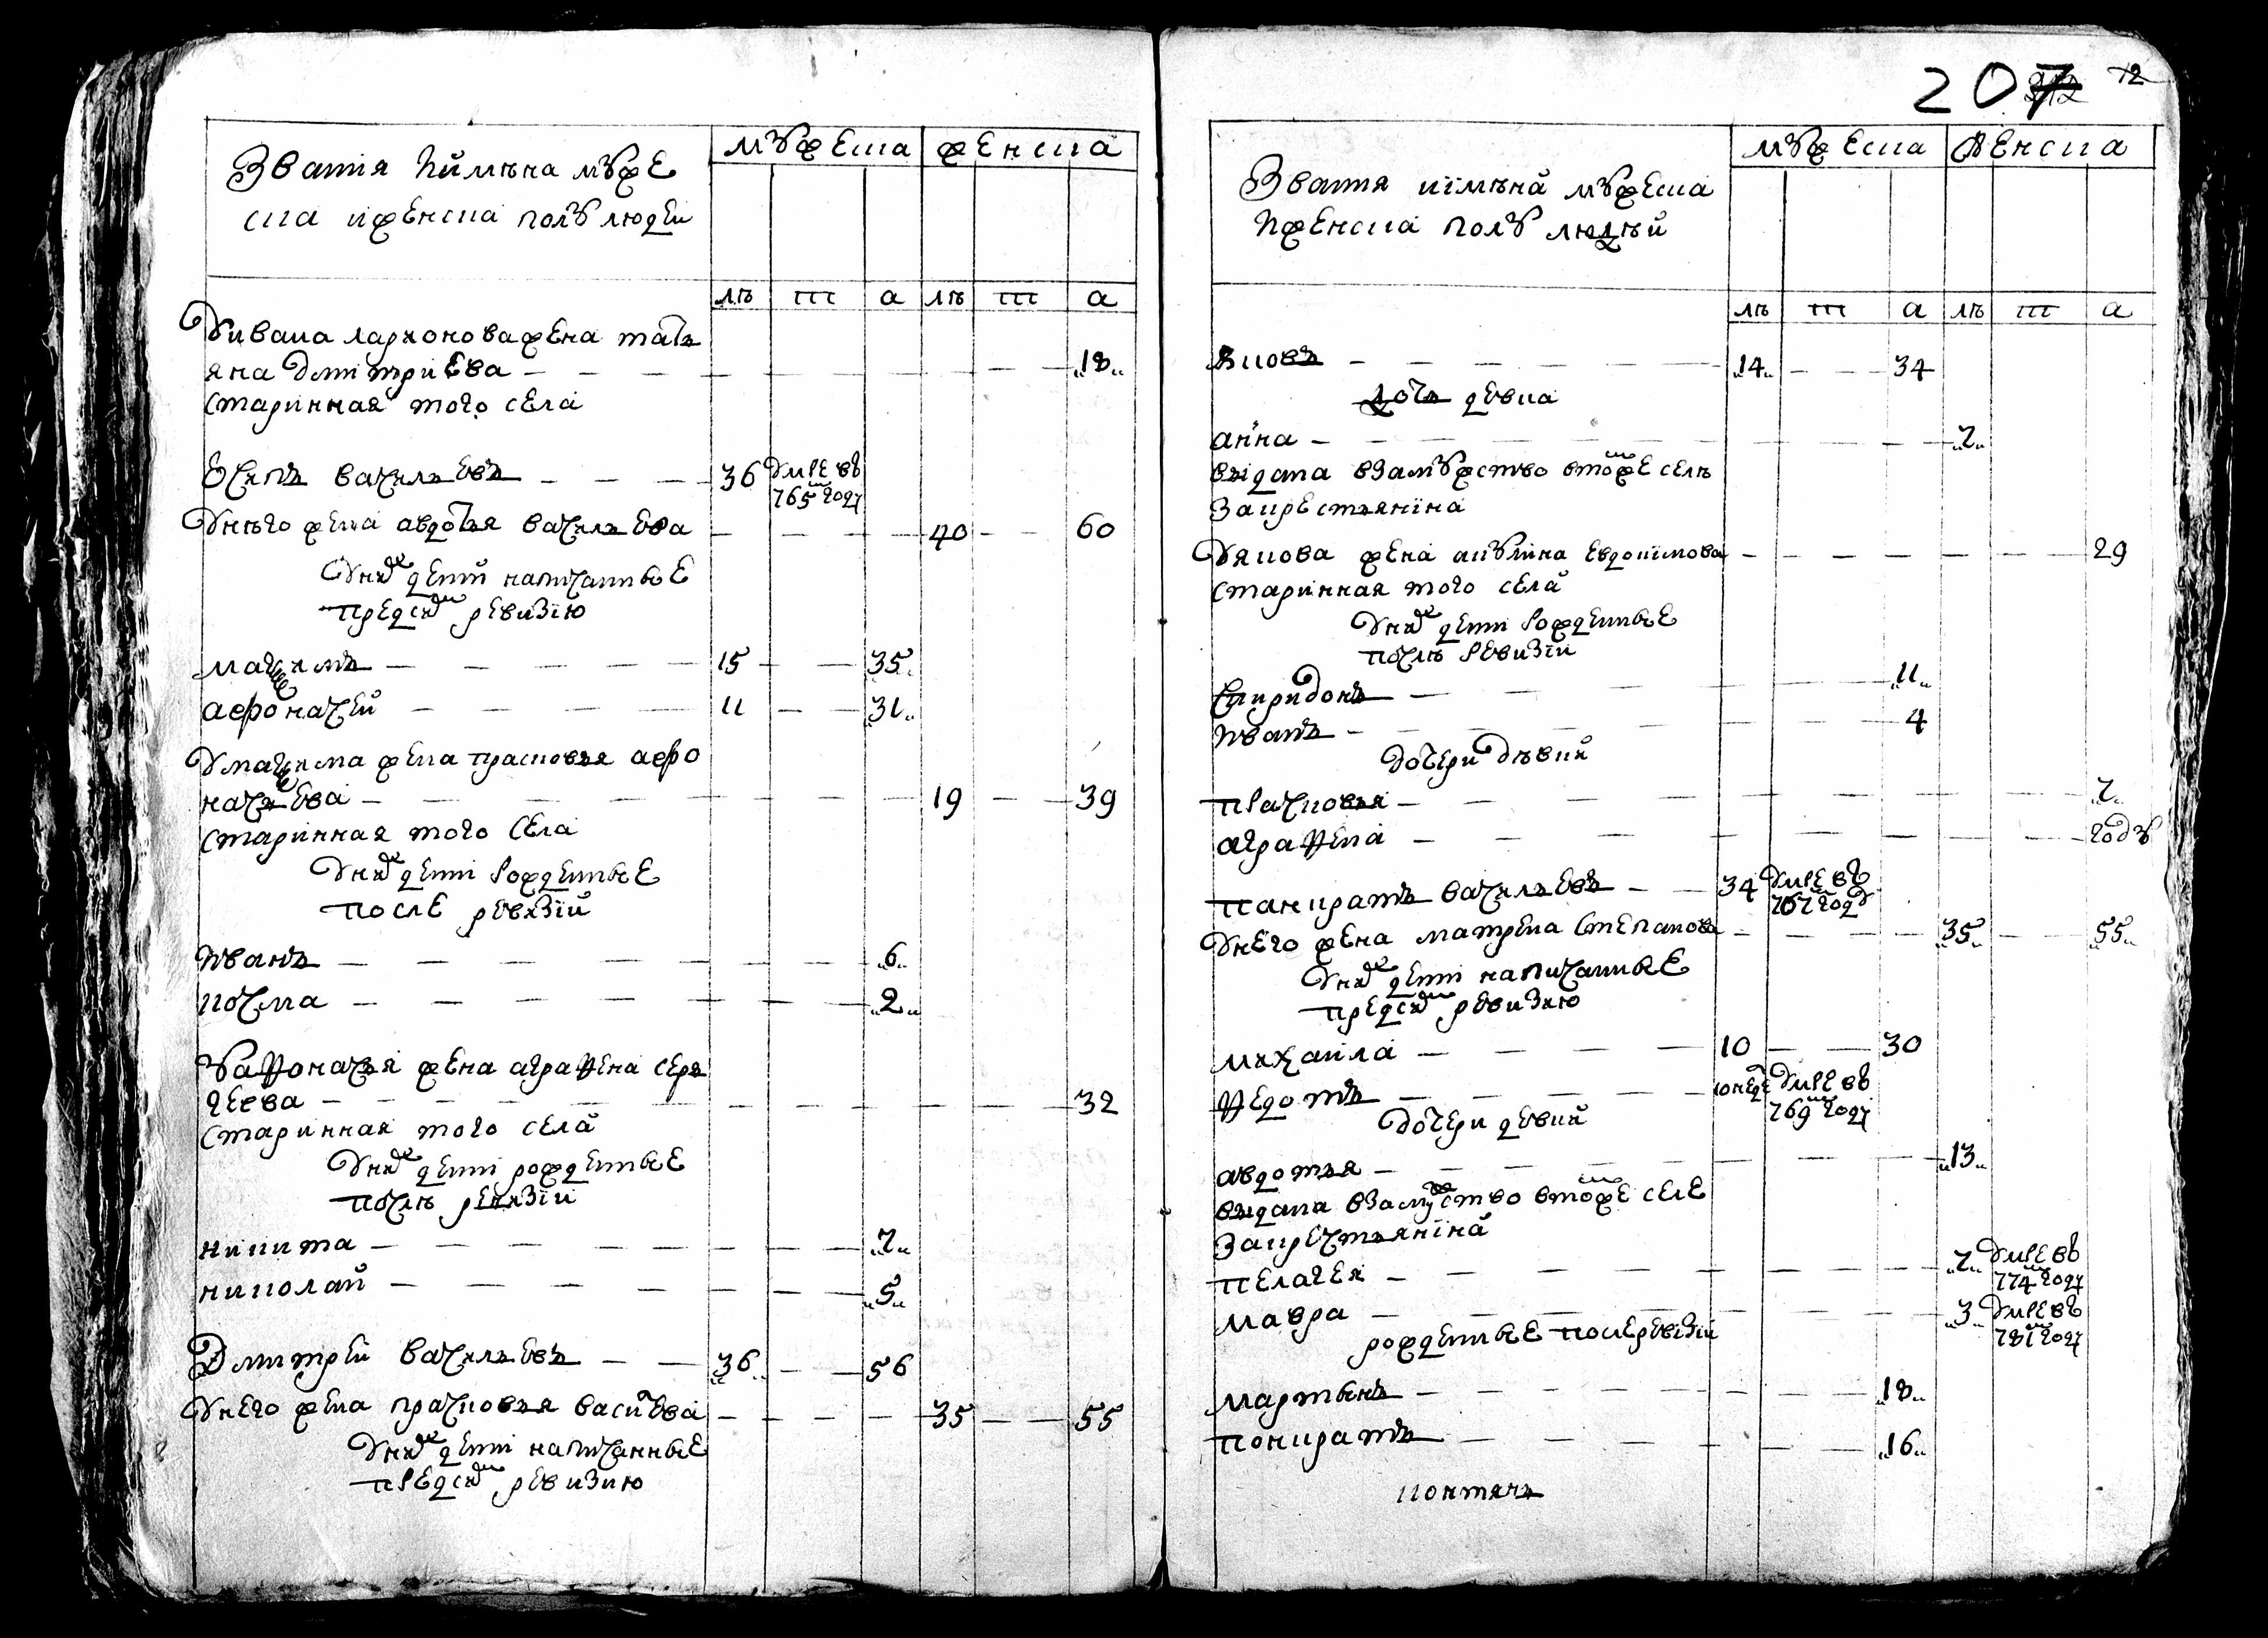 207 12
Звания иимѣна мѹже
ска иженска полѹ людеи
мѹжеска женска
лѣ ттт а лѣ ттт а
Уивана ларионова жена татья
яна дмитриева — 18
старинная того села
Осипъ васильевъ — 36 умре въ 765 году
Унѣго жена авдотья васильева — 40 — 60
Уних детй написанные
предсию ревизию
максимъ — 15 — 35
афонасей — 11 — 31
Умаксима жена прасковья афо
насьева — 19 — 39
старинная того села
Уних дети рожденные
после ревизии
Иванъ — 6
косма — 2
Уафонасья жена аграфена серь
геева — 32
старинная того села
Уних дети рожденные
послѣ ревизии
никита — 7
николай — 5
Дмитрей васильевъ — 36 — 56
Унего жена прасковья васильева — 35 — 55
Уних дети написанные
предсию ревизию
Звания иімѣна мѹжеска
иженска полѹ людѣй
мѹжеска женска
лѣ ттт а лѣ ттт а
Яковъ — 14 — 34
дочь девка
анна — 7
выдана взамѹжство втоже селѣ
закрестьянина
Уякова жена акулина евдокимова — 29
старинная того села
Уних дети рожденные
послѣ ревизии
Спиридонъ — 11
Иванъ — 4
дочери дѣвки
прасковья — 7
аграфена — годѹ
панкратъ васильевъ — 34 умре въ 767 годѹ
Унего жена матрена степанова — 35 — 55
Уних дети написанные
предсию ревизию
михаила — 10 — 30
Федотъ — умре въ 769 году
дочери девки
авдотья — 13
выдана взамужство втоже селе
закрестьянина
пелагея — 7 умре въ 774 году
мавра — 3 умре въ 781 году
рожденные послеревизии
мартынъ — 18
понкратъ — 16